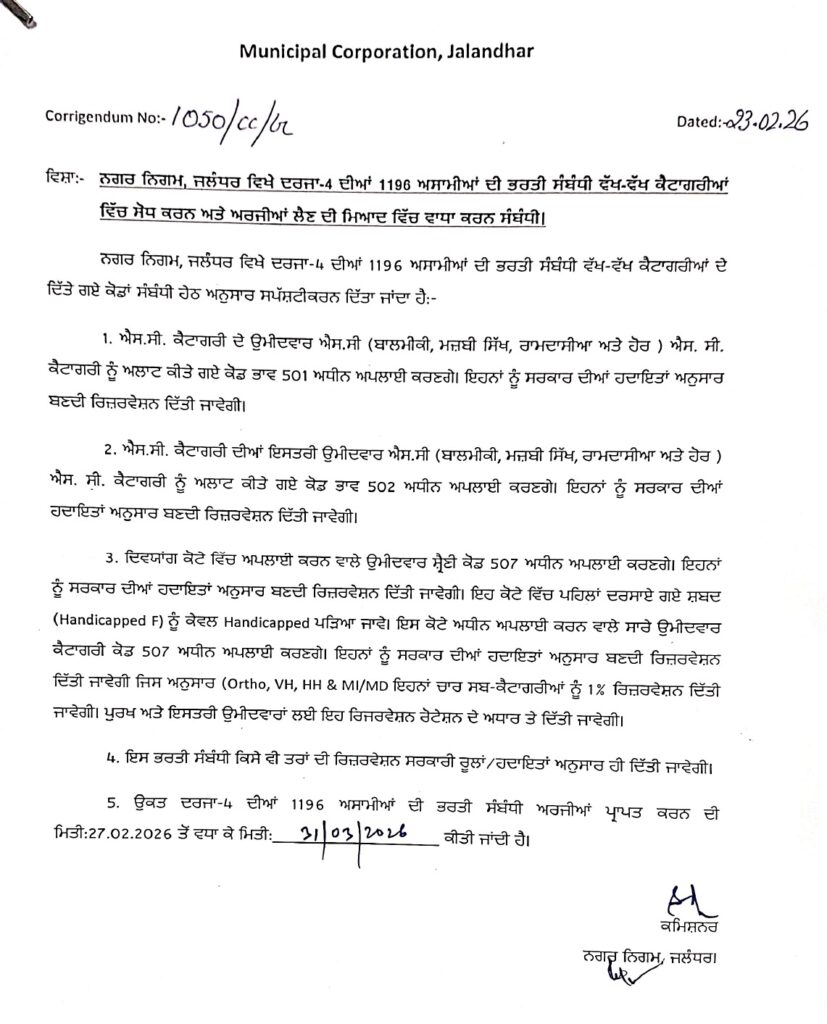 Municipal Corporation, Jalandhar
Corrigendum No:- 1050/cc/ Dated:- 23.02.26
ਵਿਸ਼ਾ:- ਨਗਰ ਨਿਗਮ, ਜਲੰਧਰ ਵਿਖੇ ਦਰਜਾ-4 ਦੀਆਂ 1196 ਅਸਾਮੀਆਂ ਦੀ ਭਰਤੀ ਸੰਬੰਧੀ ਵੱਖ-ਵੱਖ ਕੈਟਾਗਰੀਆਂ
ਵਿੱਚ ਸੋਧ ਕਰਨ ਅਤੇ ਅਰਜੀਆਂ ਲੈਣ ਦੀ ਮਿਆਦ ਵਿੱਚ ਵਾਧਾ ਕਰਨ ਸੰਬੰਧੀ।
ਨਗਰ ਨਿਗਮ, ਜਲੰਧਰ ਵਿਖੇ ਦਰਜਾ-4 ਦੀਆਂ 1196 ਅਸਾਮੀਆਂ ਦੀ ਭਰਤੀ ਸੰਬੰਧੀ ਵੱਖ-ਵੱਖ ਕੈਟਾਗਰੀਆਂ ਦੇ
ਦਿੱਤੇ ਗਏ ਕੋਡਾਂ ਸੰਬੰਧੀ ਹੇਠ ਅਨੁਸਾਰ ਸਪੱਸ਼ਟੀਕਰਨ ਦਿੱਤਾ ਜਾਂਦਾ ਹੈ:-
1. ਐਸ.ਸੀ. ਕੈਟਾਗਰੀ ਦੇ ਉਮੀਦਵਾਰ ਐਸ.ਸੀ (ਬਾਲਮੀਕੀ, ਮਜ਼ਬੀ ਸਿੱਖ, ਰਾਮਦਾਸੀਆ ਅਤੇ ਹੋਰ ) ਐਸ. ਸੀ.
ਕੈਟਾਗਰੀ ਨੂੰ ਅਲਾਟ ਕੀਤੇ ਗਏ ਕੋਡ ਭਾਵ 501 ਅਧੀਨ ਅਪਲਾਈ ਕਰਣਗੇ। ਇਹਨਾਂ ਨੂੰ ਸਰਕਾਰ ਦੀਆਂ ਹਦਾਇਤਾਂ ਅਨੁਸਾਰ
ਬਣਦੀ ਰਿਜ਼ਰਵੇਸ਼ਨ ਦਿੱਤੀ ਜਾਵੇਗੀ।
2. ਐਸ.ਸੀ. ਕੈਟਾਗਰੀ ਦੀਆਂ ਇਸਤਰੀ ਉਮੀਦਵਾਰ ਐਸ.ਸੀ (ਬਾਲਮੀਕੀ, ਮਜ਼ਬੀ ਸਿੱਖ, ਰਾਮਦਾਸੀਆ ਅਤੇ ਹੋਰ )
ਐਸ. ਸੀ. ਕੈਟਾਗਰੀ ਨੂੰ ਅਲਾਟ ਕੀਤੇ ਗਏ ਕੋਡ ਭਾਵ 502 ਅਧੀਨ ਅਪਲਾਈ ਕਰਣਗੇ। ਇਹਨਾਂ ਨੂੰ ਸਰਕਾਰ ਦੀਆਂ
ਹਦਾਇਤਾਂ ਅਨੁਸਾਰ ਬਣਦੀ ਰਿਜ਼ਰਵੇਸ਼ਨ ਦਿੱਤੀ ਜਾਵੇਗੀ।
3. ਦਿਵਯਾਂਗ ਕੋਟੇ ਵਿੱਚ ਅਪਲਾਈ ਕਰਨ ਵਾਲੇ ਉਮੀਦਵਾਰ ਸ਼੍ਰੈਣੀ ਕੋਡ 507 ਅਧੀਨ ਅਪਲਾਈ ਕਰਣਗੇ। ਇਹਨਾਂ
ਨੂੰ ਸਰਕਾਰ ਦੀਆਂ ਹਦਾਇਤਾਂ ਅਨੁਸਾਰ ਬਣਦੀ ਰਿਜ਼ਰਵੇਸ਼ਨ ਦਿੱਤੀ ਜਾਵੇਗੀ। ਇਹ ਕੋਟੇ ਵਿੱਚ ਪਹਿਲਾਂ ਦਰਸਾਏ ਗਏ ਸ਼ਬਦ
(Handicapped F) ਨੂੰ ਕੇਵਲ Handicapped ਪੜਿਆ ਜਾਵੇ। ਇਸ ਕੋਟੇ ਅਧੀਨ ਅਪਲਾਈ ਕਰਨ ਵਾਲੇ ਸਾਰੇ ਉਮੀਦਵਾਰ
ਕੈਟਾਗਰੀ ਕੋਡ 507 ਅਧੀਨ ਅਪਲਾਈ ਕਰਣਗੇ। ਇਹਨਾਂ ਨੂੰ ਸਰਕਾਰ ਦੀਆਂ ਹਦਾਇਤਾਂ ਅਨੁਸਾਰ ਬਣਦੀ ਰਿਜ਼ਰਵੇਸ਼ਨ
ਦਿੱਤੀ ਜਾਵੇਗੀ ਜਿਸ ਅਨੁਸਾਰ (Ortho, VH, HH & MI/MD ਇਹਨਾਂ ਚਾਰ ਸਬ-ਕੈਟਾਗਰੀਆਂ ਨੂੰ 1% ਰਿਜ਼ਰਵੇਸ਼ਨ ਦਿੱਤੀ
ਜਾਵੇਗੀ। ਪੁਰਖ ਅਤੇ ਇਸਤਰੀ ਉਮੀਦਵਾਰਾਂ ਲਈ ਇਹ ਰਿਜਰਵੇਸ਼ਨ ਰੋਟੇਸ਼ਨ ਦੇ ਅਧਾਰ ਤੇ ਦਿੱਤੀ ਜਾਵੇਗੀ।
4. ਇਸ ਭਰਤੀ ਸੰਬੰਧੀ ਕਿਸੇ ਵੀ ਤਰਾਂ ਦੀ ਰਿਜ਼ਰਵੇਸ਼ਨ ਸਰਕਾਰੀ ਰੂਲਾਂ/ਹਦਾਇਤਾਂ ਅਨੁਸਾਰ ਹੀ ਦਿੱਤੀ ਜਾਵੇਗੀ।
5. ਉਕਤ ਦਰਜਾ-4 ਦੀਆਂ 1196 ਅਸਾਮੀਆਂ ਦੀ ਭਰਤੀ ਸੰਬੰਧੀ ਅਰਜੀਆਂ ਪ੍ਰਾਪਤ ਕਰਨ ਦੀ
ਮਿਤੀ:27.02.2026 ਤੋਂ ਵਧਾ ਕੇ ਮਿਤੀ: 31/03/2026 ਕੀਤੀ ਜਾਂਦੀ ਹੈ।
ਕਮਿਸ਼ਨਰ
ਨਗਰ ਨਿਗਮ, ਜਲੰਧਰ।